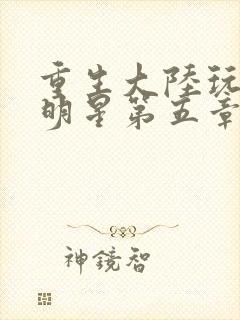 重生大陸玩
明星第五章
神鏡智